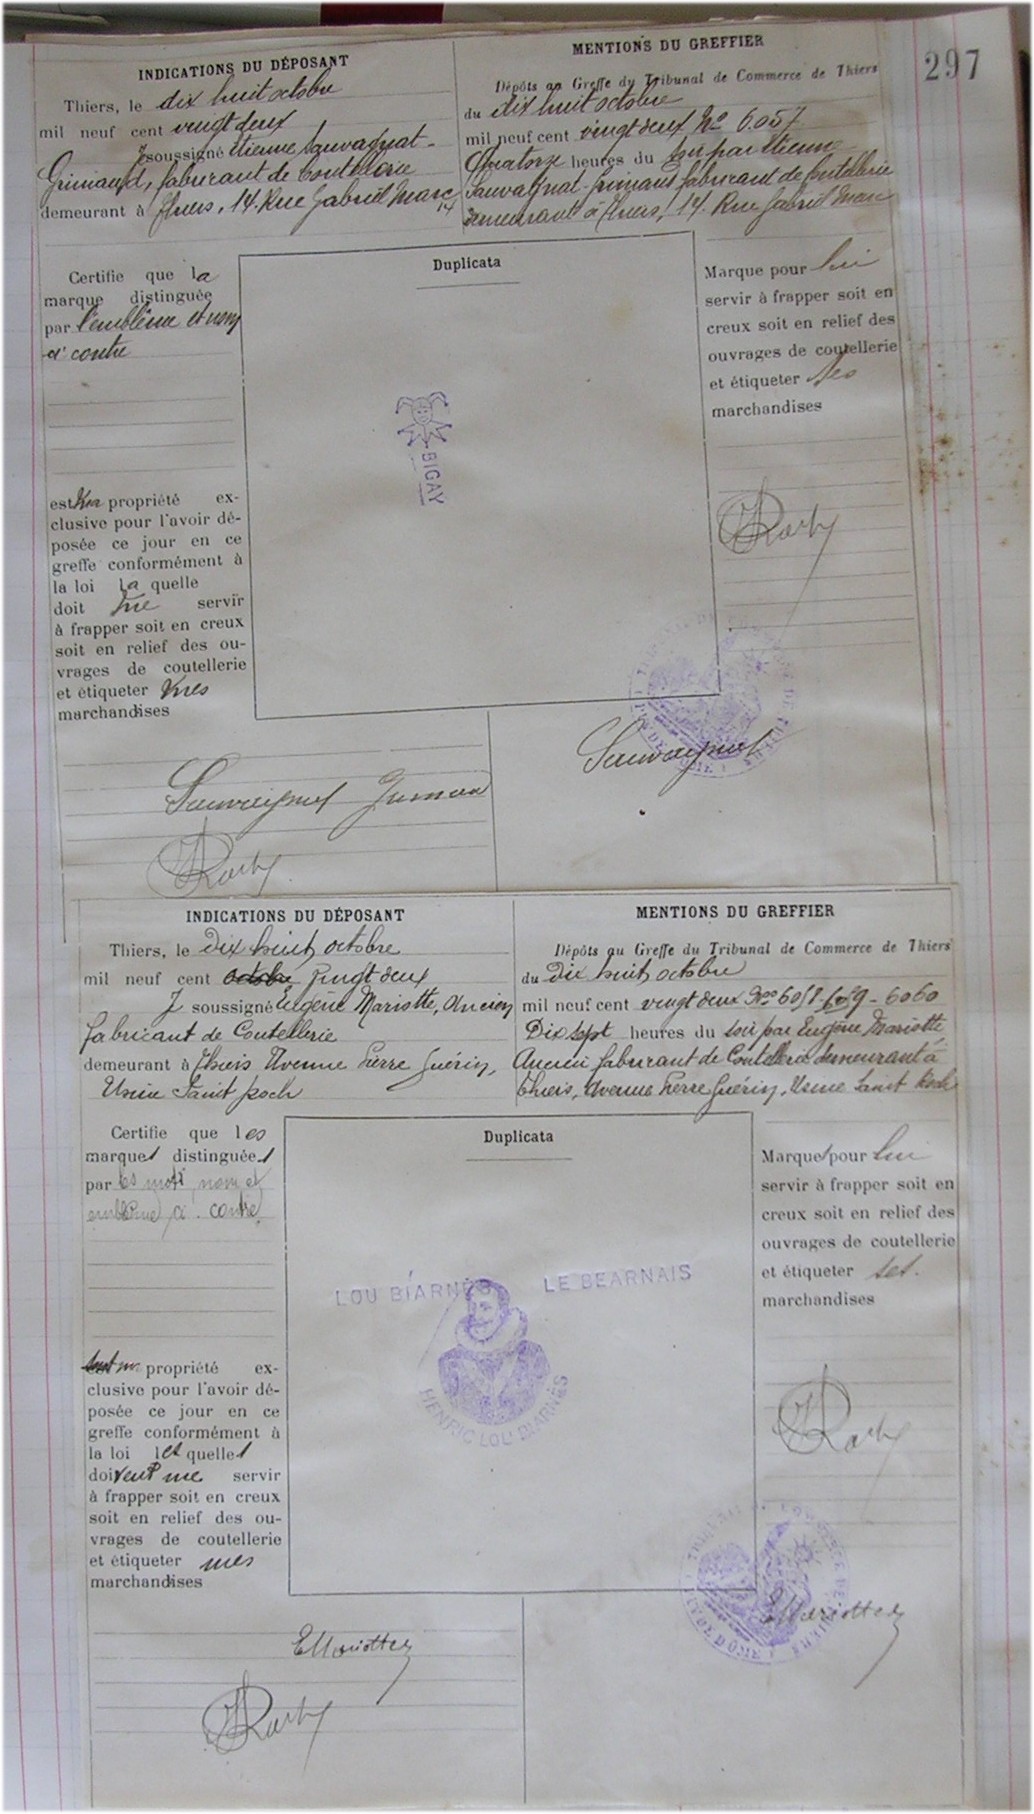 297
INDICATIONS DU DÉPOSANT
Thiers, le dix huit octobre
mil neuf cent vingt deux
Je soussigné Etienne Sauvagnat-
Grimaud, fabricant de Coutellerie
demeurant à Thiers, 14. Rue Gabriel Marc
14
MENTIONS DU GREFFIER
Dépôts au Greffe du Tribunal de Commerce de Thiers
du dix huit octobre
mil neuf cent vingt deux No 6.057
Quatorze heures du soir par Etienne
Sauvagnat-Grimaud fabricant de Coutellerie
demeurant à Thiers, 14. Rue Gabriel Marc
Certifie que la
marque distinguée
par l'emblème et nom
ci contre
est ma propriété ex-
clusive pour l'avoir dé-
posée ce jour en ce
greffe conformément à
la loi la quelle
doit me servir
à frapper soit en creux
soit en relief des ou-
vrages de coutellerie
et étiqueter mes
marchandises
Duplicata
BIGAY
Marque pour lui
servir à frapper soit en
creux soit en relief des
ouvrages de coutellerie
et étiqueter ses
marchandises
Sauvagnat Grimaud
Sauvagnat
INDICATIONS DU DÉPOSANT
Thiers, le Dix huit octobre
mil neuf cent octobre vingt deux
J soussigné Eugène Mariotte, Ancien
fabricant de Coutellerie
demeurant à Thiers Avenue Pierre Guérin,
Usine Saint Roch
MENTIONS DU GREFFIER
Dépôts au Greffe du Tribunal de Commerce de Thiers
du Dix huit octobre
mil neuf cent vingt deux Nos 6058-6059-6060
Dix sept heures du soir par Eugène Mariotte,
Ancien fabricant de Coutellerie demeurant à
Thiers, Avenue Pierre Guérin, Usine Saint Roch
Certifie que les
marques distinguées
par les mots nom et
emblème ci contre
sont ma propriété ex-
clusive pour l'avoir dé-
posée ce jour en ce
greffe conformément à
la loi les quelles
doivent me servir
à frapper soit en creux
soit en relief des ou-
vrages de coutellerie
et étiqueter mes
marchandises
Duplicata
LOU BIARNÈS LE BEARNAIS
HENRIC LOU BIARNÈS
Marques pour lui
servir à frapper soit en
creux soit en relief des
ouvrages de coutellerie
et étiqueter ses.
marchandises
E Mariotte
E Mariotte